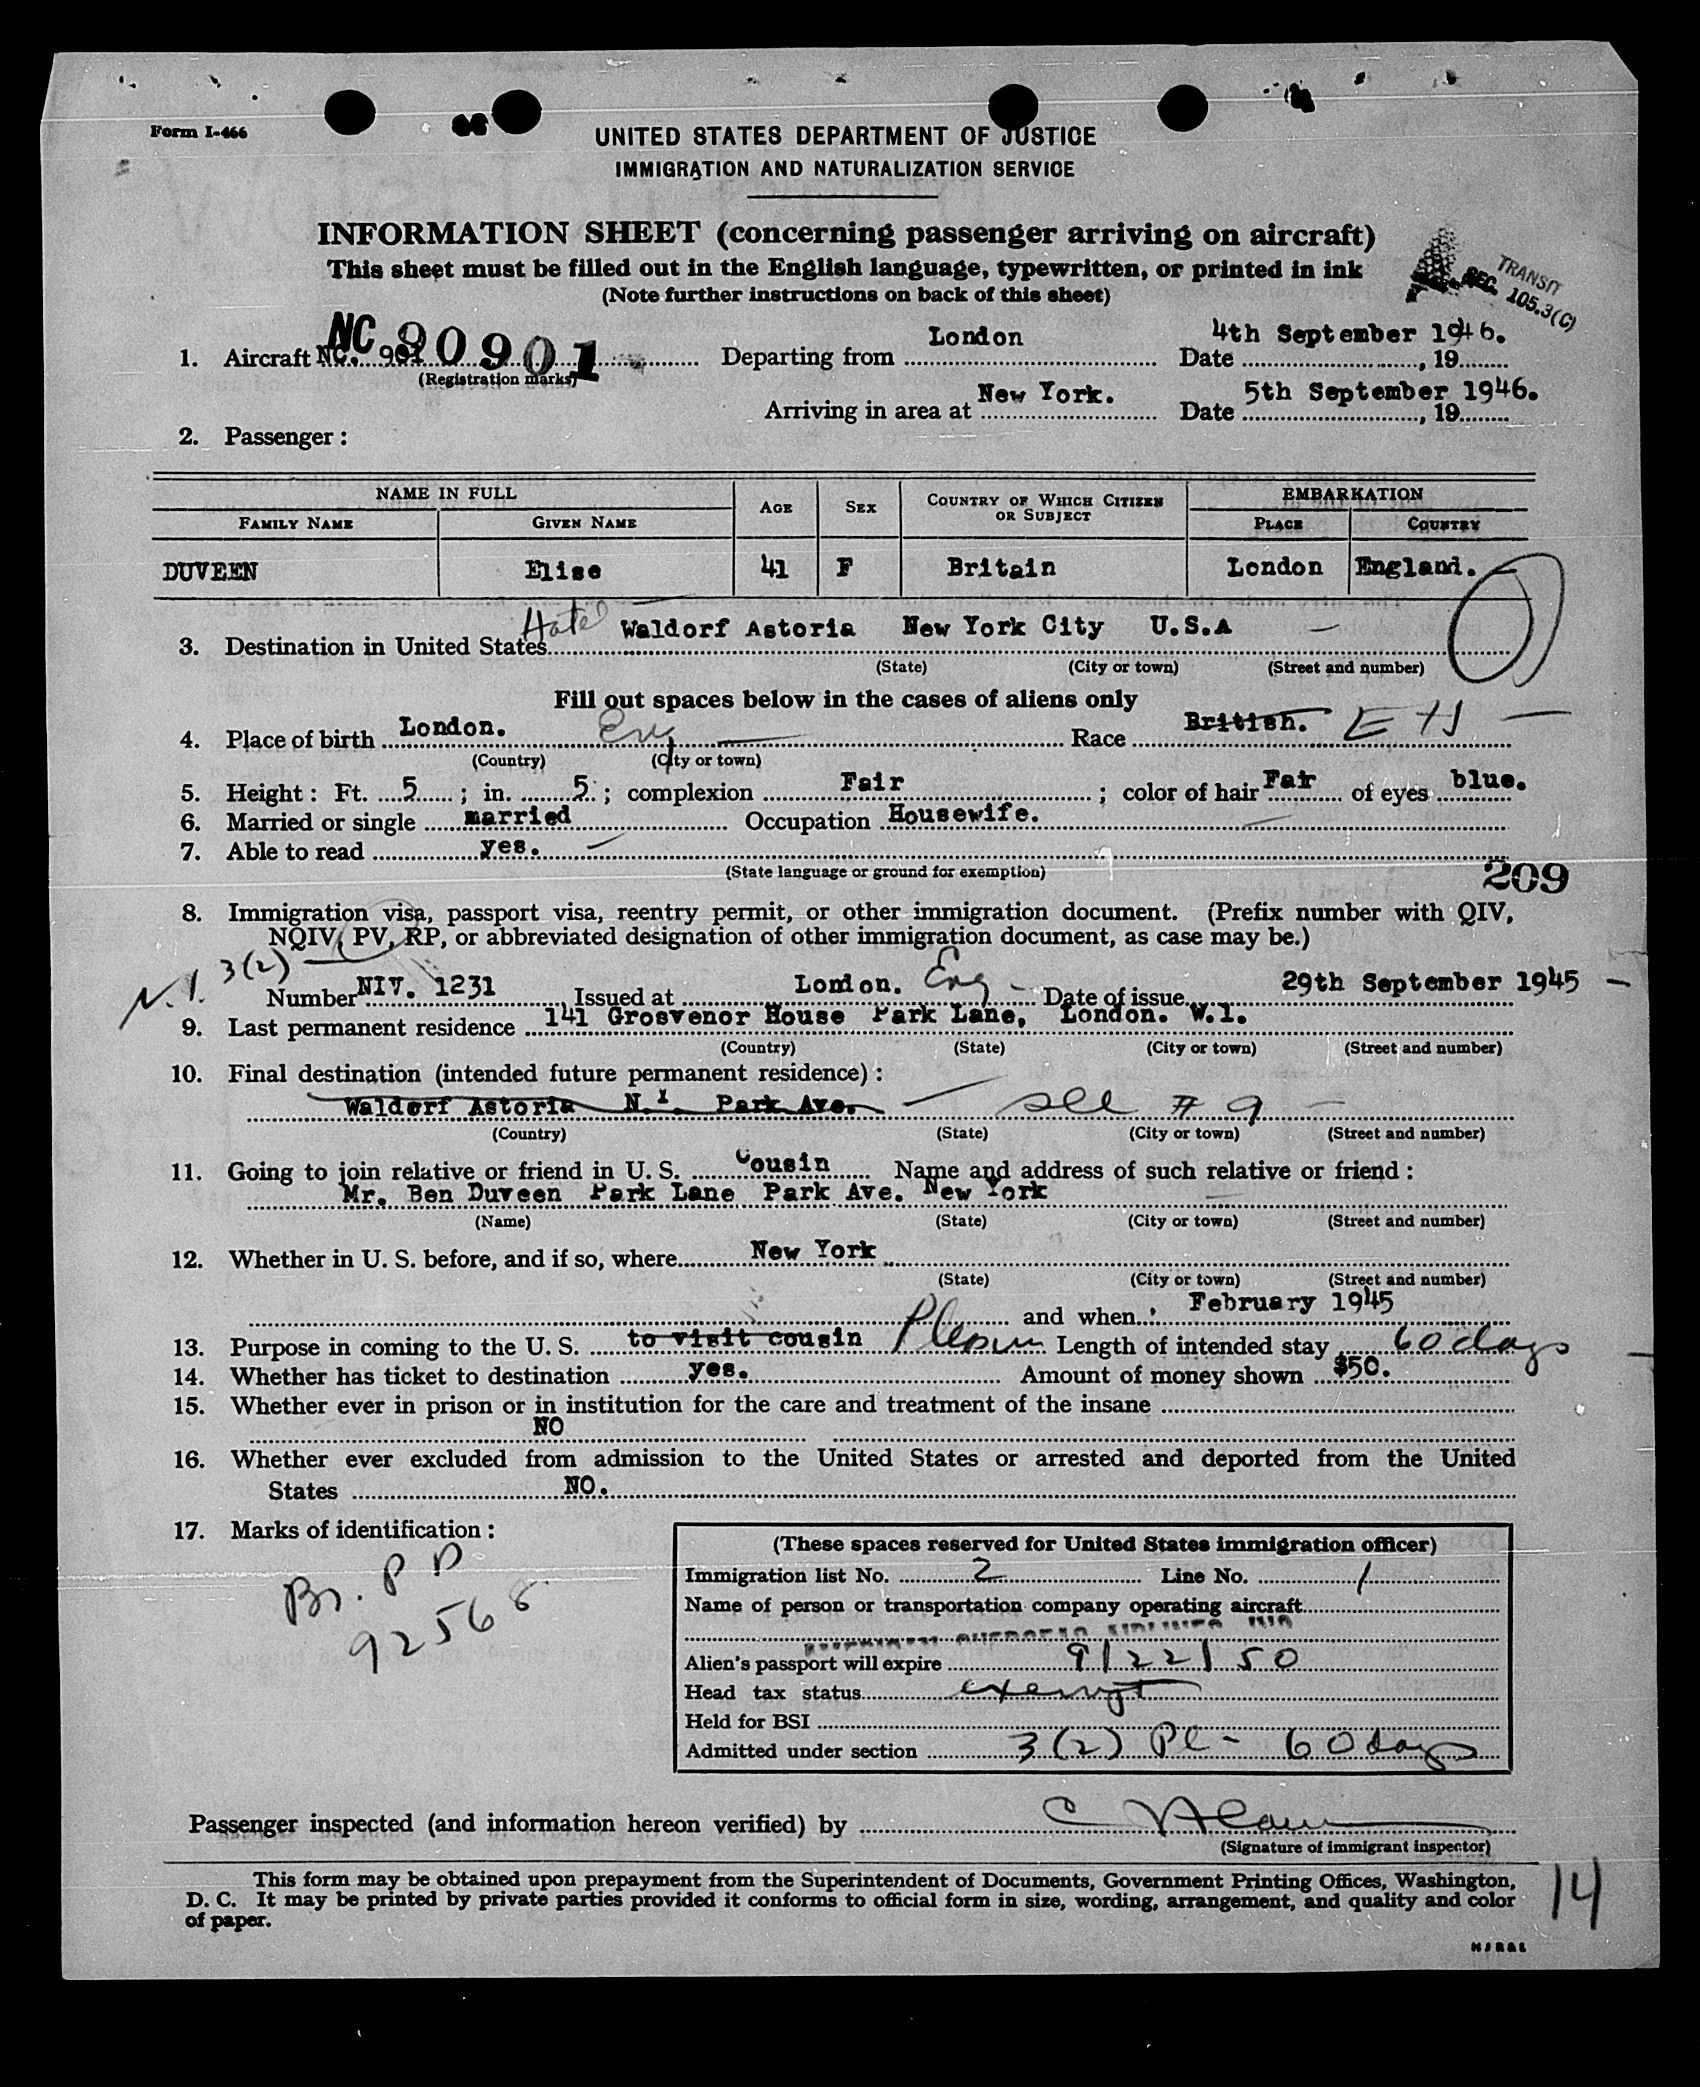 Form I-466
UNITED STATES DEPARTMENT OF JUSTICE
IMMIGRATION AND NATURALIZATION SERVICE
INFORMATION SHEET (concerning passenger arriving on aircraft)
This sheet must be filled out in the English language, typewritten, or printed in ink
(Note further instructions on back of this sheet)
TRANSIT
SEC. 105.3(C)
1. Aircraft NC. 901 NC 90901 Departing from London Date 4th September 1946., 19
(Registration marks)
Arriving in area at New York. Date 5th September 1946., 19
2. Passenger :
NAME IN FULL AGE SEX COUNTRY OF WHICH CITIZEN OR SUBJECT EMBARKATION
FAMILY NAME GIVEN NAME PLACE COUNTRY
DUVEEN Elise 41 F Britain London England.
3. Destination in United States Hotel Waldorf Astoria New York City U.S.A
(State) (City or town) (Street and number)
Fill out spaces below in the cases of aliens only
4. Place of birth London. Eng Race British. E
(Country) (City or town)
5. Height : Ft. 5 ; in. 5 ; complexion Fair ; color of hair Fair of eyes blue.
6. Married or single married Occupation Housewife.
7. Able to read yes.
(State language or ground for exemption)
209
8. Immigration visa, passport visa, reentry permit, or other immigration document. (Prefix number with QIV,
NQIV, PV, RP, or abbreviated designation of other immigration document, as case may be.)
N.I. 3(2)
Number NIV. 1231 Issued at London. Eng Date of issue 29th September 1945
9. Last permanent residence 141 Grosvenor House Park Lane, London. W.1.
(Country) (State) (City or town) (Street and number)
10. Final destination (intended future permanent residence) :
Waldorf Astoria N.Y. Park Ave. see # 9
(Country) (State) (City or town) (Street and number)
11. Going to join relative or friend in U. S. Cousin Name and address of such relative or friend :
Mr. Ben Duveen Park Lane Park Ave. New York
(Name) (State) (City or town) (Street and number)
12. Whether in U. S. before, and if so, where New York
(State) (City or town) (Street and number)
and when February 1945
13. Purpose in coming to the U. S. to visit cousin Pleasure Length of intended stay 60 days
14. Whether has ticket to destination yes. Amount of money shown $50.
15. Whether ever in prison or in institution for the care and treatment of the insane
NO
16. Whether ever excluded from admission to the United States or arrested and deported from the United
States NO.
17. Marks of identification :
Br. PP
92568
(These spaces reserved for United States immigration officer)
Immigration list No. 2 Line No. 1
Name of person or transportation company operating aircraft
Alien's passport will expire 9/22/50
Head tax status exempt
Held for BSI
Admitted under section 3(2) Pl- 60 days
Passenger inspected (and information hereon verified) by
(Signature of immigrant inspector)
This form may be obtained upon prepayment from the Superintendent of Documents, Government Printing Offices, Washington,
D. C. It may be printed by private parties provided it conforms to official form in size, wording, arrangement, and quality and color
of paper.
14